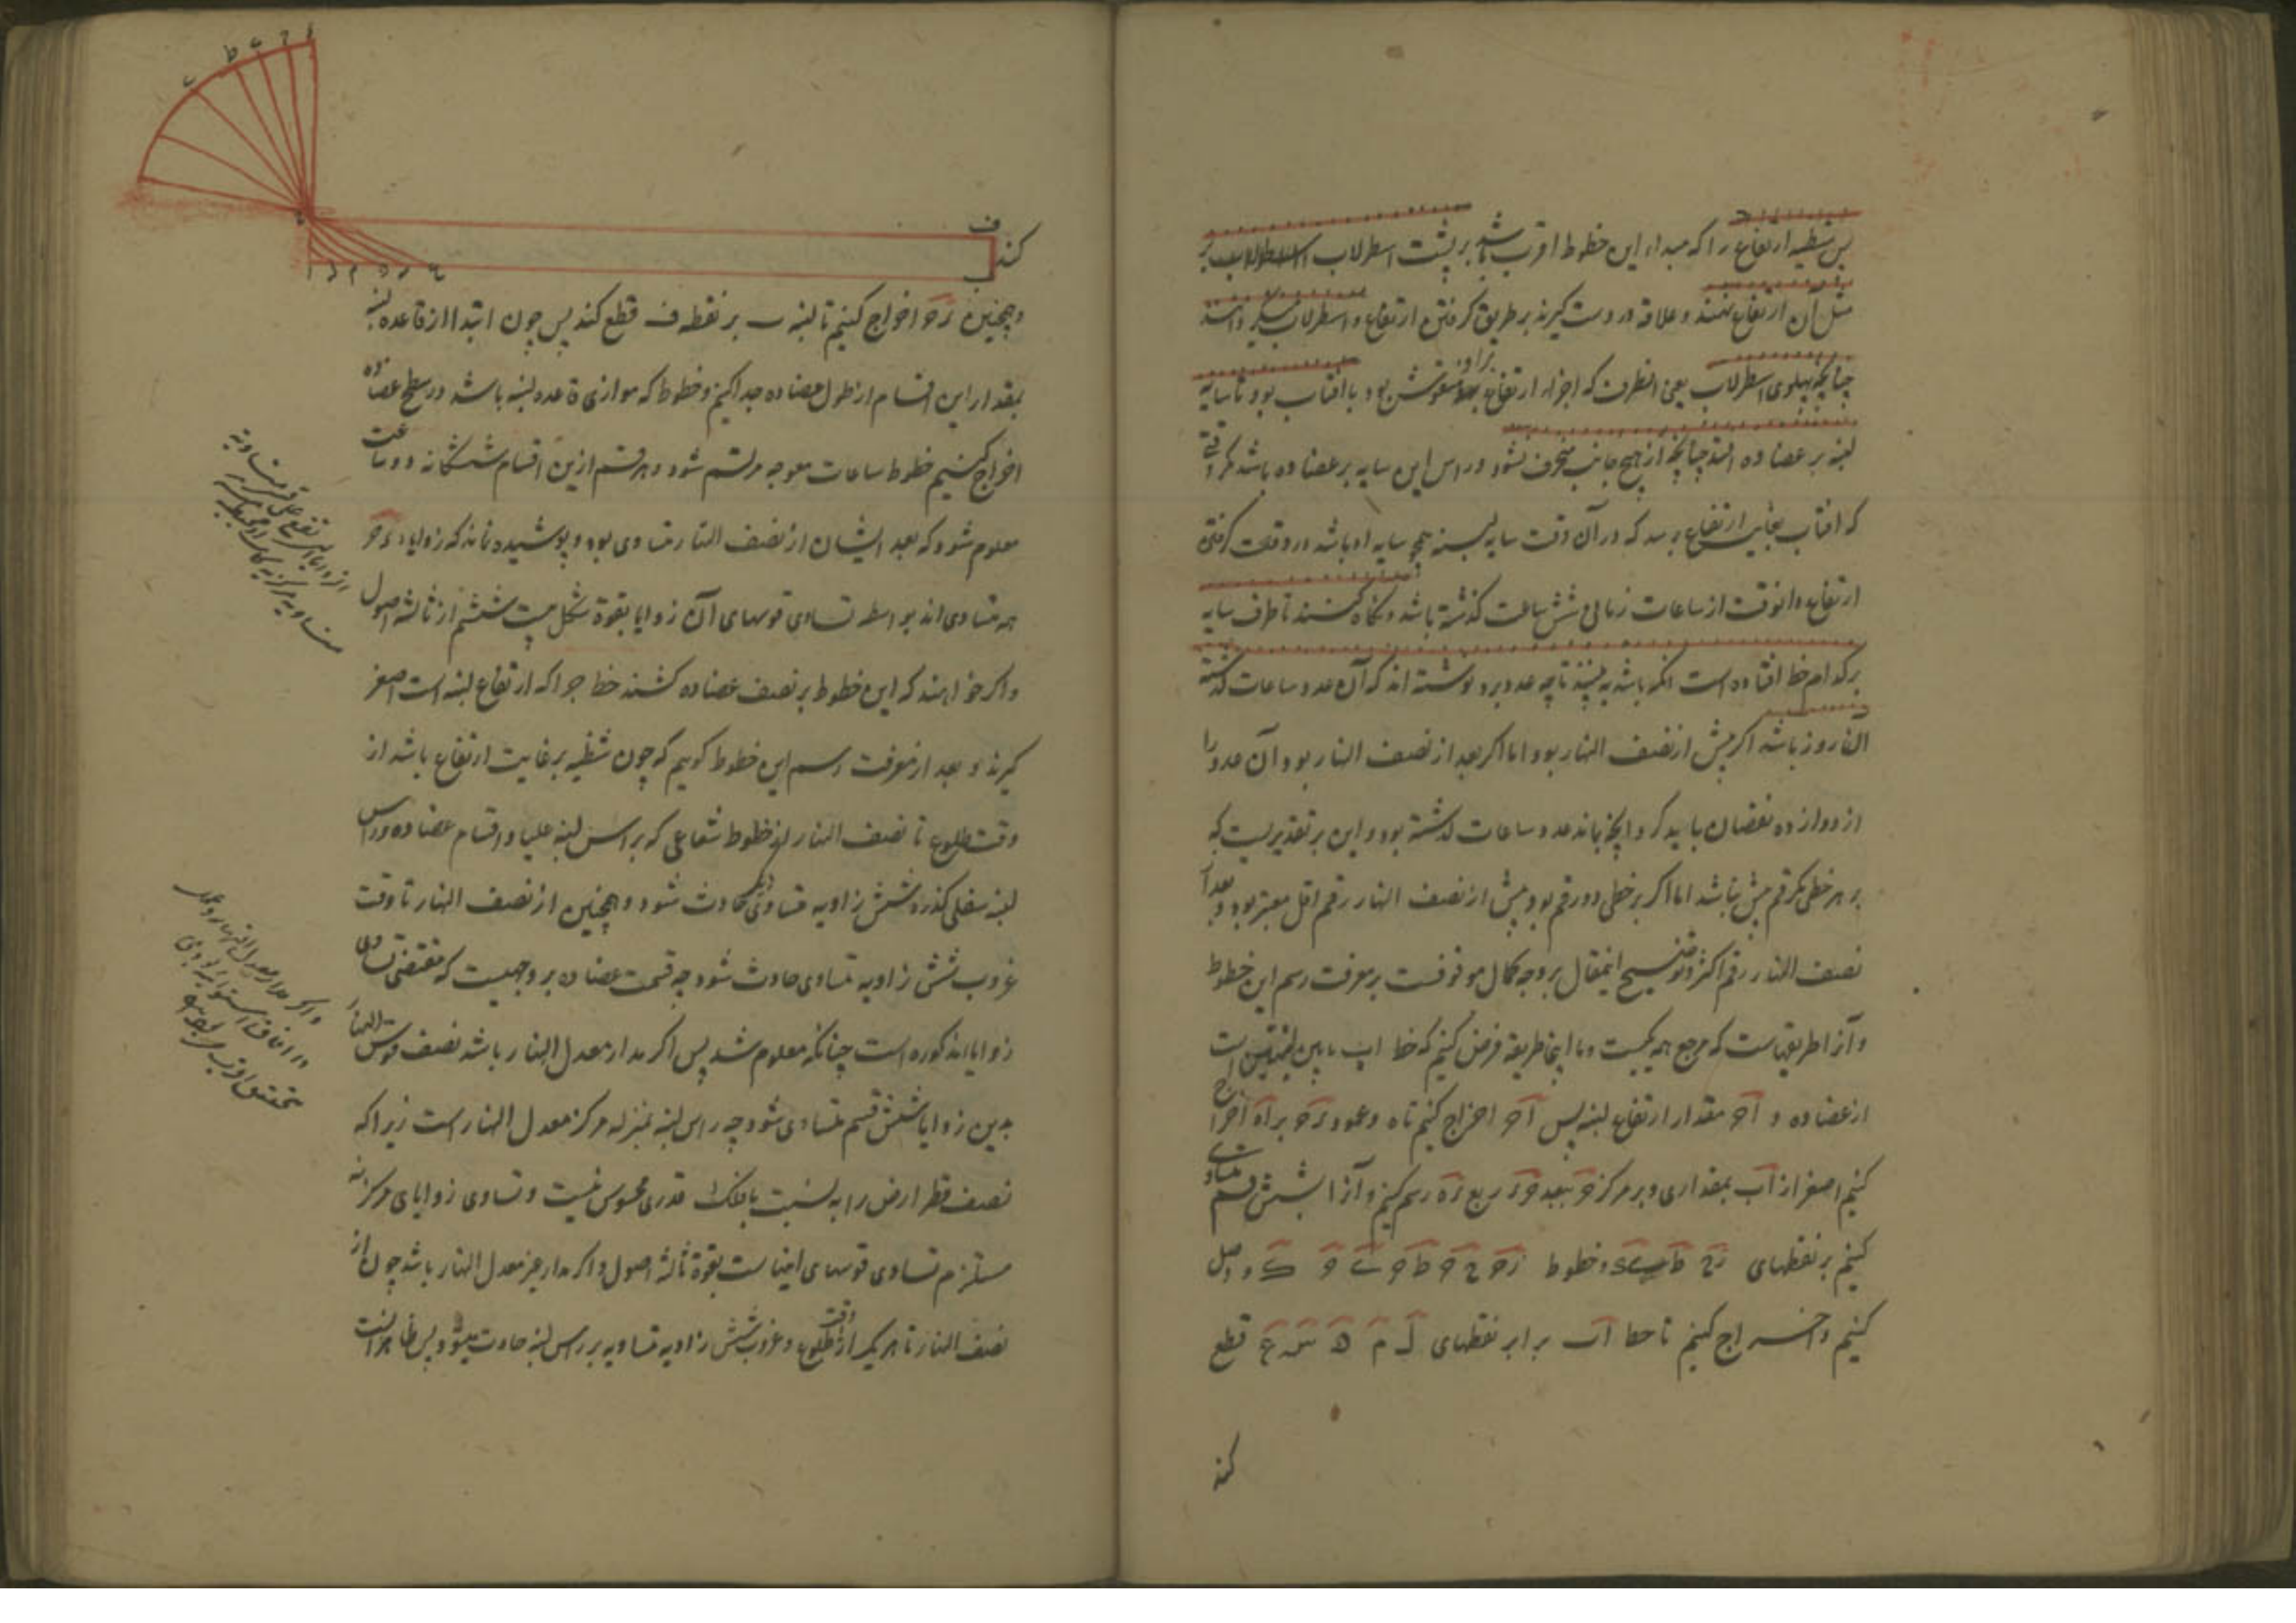 پس شظیه ارتفاع را که مبداء این خطوط اقرب باشد بر پشت اسطرلاب بر
مثل آن ارتفاع نهند و علاقه در دست گیرند بر طریق گرفتن ارتفاع و اسطرلاب
چنانچه پهلوی اسطرلاب یعنی انطرف که اجزاء ارتفاع براو منقوش بود با افتاب بود تا سایه
لبنه بر عضاده افتد چنانچه از هیچ جانب منحرف نشود و راس این سایه بر عضاده باشد مگر وقتی
که افتاب بغایت ارتفاع برسد که در آن وقت سایه لبنه هیچ سایه او باشد در وقت گرفتن
ارتفاع و انوقت از ساعات زمانی شش ساعت گذشته باشد و نگاه کنند تا طرف سایه
بر کدام خط افتاده است انگه باشد ببینند تا چه عدد برو نوشته اند که آن عدد ساعات گذشته
آن روز باشد اگر پیش از نصف النهار بود اما اگر بعد از نصف النهار بود آن عدد را
از دوازده نقصان باید کرد و آنچه بماند عدد ساعات گذشته بود و این بر تقدیریست که
بر هر خطی یکرقم بیش نباشد اما اگر بر خطی دو رقم بود پیش از نصف النهار رقم اقل معتبر بود و بعد از
نصف النهار رقم اکثر و توضیح اینمقال بر وجه کمال موقوفست بر معرفت رسم این خطوط
و آنرا طریقهاست که مرجع همه یکیست و ما اینجا طریقه فرض کنیم که خط اب مابین لبنتین است
از عضاده و آج مقدار ارتفاع لبنه پس آج اخراج کنیم تا ه و عمود رج بر آه اخراج
کنیم اصغر از آب بمقداری و بر مرکز ج ببعد جر ربع ره رسم کنیم و آنرا بشش قسم متساوی
کنیم بر نقطهای رح ط ی ک و خطوط رج ح ج ط ج ی ج ک وصل
کنیم و اخراج کنیم تا خط اب برابر نقطهای ل م ن س ع قطع
کند
ف
کند
ب
و همچنین رج اخراج کنیم تا لبنه ب بر نقطه ف قطع کند پس چون ابتدا از قاعده لبنه
بمقدار این اقسام از طول عضاده جدا کنیم و خطوط که موازی قاعده لبنه باشد در سطح عضاده
اخراج کنیم خطوط ساعات معوجه مرتسم شود و هر قسم ازین اقسام ششگانه دو ساعت
معلوم شود که بعد ایشان از نصف النهار متساوی بود و پوشیده نماند که زوایاء
همه متساوی اند بواسطه تساوی قوسهای آن زوایا بقوة شکل بیست ششم از ثالثه اصول
و اگر خواهند که این خطوط بر نصف عضاده کشند خط جرا که ارتفاع لبنه است اصغر
گیرند و بعد از معرفت رسم این خطوط گوییم که چون شظیه بر غایت ارتفاع باشد از
وقت طلوع تا نصف النهار از خطوط شعاعی که بر راس لبنه علیا و اقسام عضاده و راس
لبنه سفلی گذرد شش زاویه متساوی حادث شود و همچنین از نصف النهار تا وقت
غروب شش زاویه متساوی حادث شود چه قسمت عضاده بر وجهیست که مقتضی تساوی
زوایاء مذکوره است چنانکه معلوم شد پس اگر مدار معدل النهار باشد نصف قوس النهار
بدین زوایا بشش قسم متساوی شود چه راس لبنه بمنزله مرکز معدل النهار است زیرا که
نصف قطر ارض را به نسبت بافلک قدری محسوس نیست و تساوی زوایای مرکزیه
مستلزم تساوی قوسهای انهاست بقوة ثالثه اصول و اگر مدار غیر معدل النهار باشد چون از
نصف النهار تا هر یک از وقت طلوع و غروب شش زاویه متساویه بر راس لبنه حادث میشود پس ظاهر است